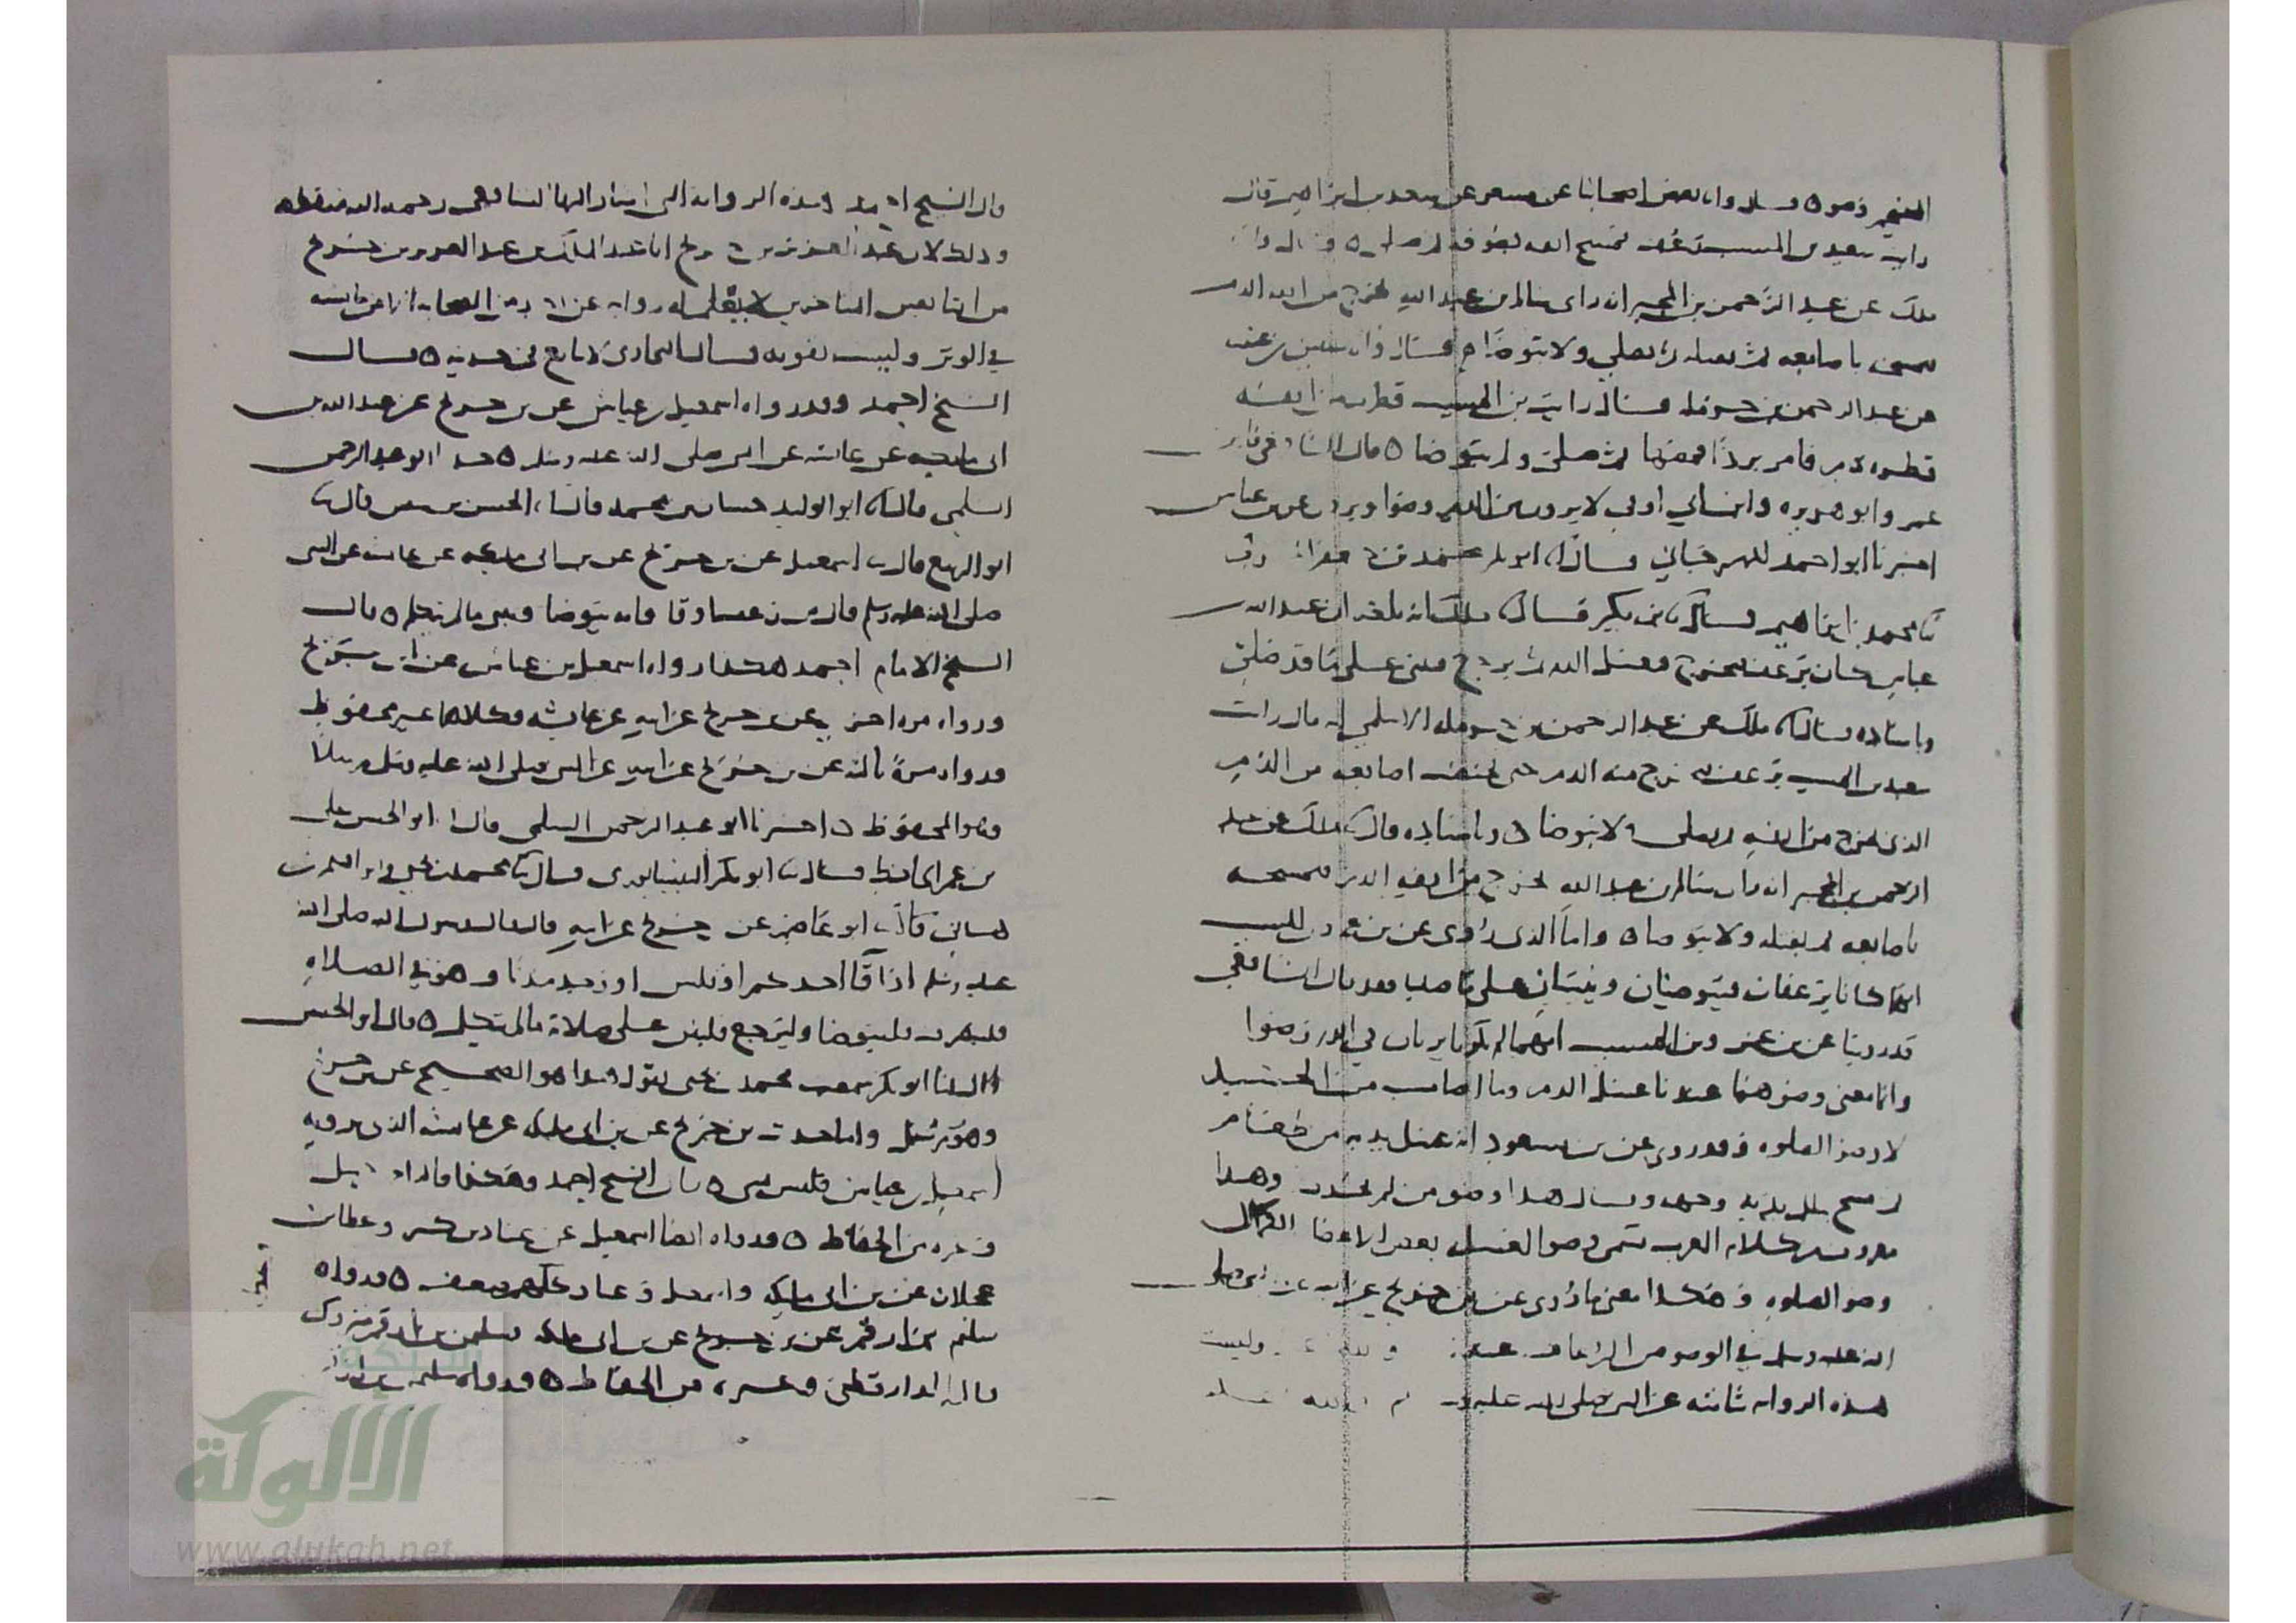 المتيمم وضوء ٥ قال وانا بعض اصحابنا عن مسعر عن سعد بن ابراهيم قال
رايت سعيد بن المسيب رعف فمسح انفه بصوفه ثم صلى ٥ قال وانا
ملك عن عبد الرحمن بن المجبر انه راى سالم بن عبد الله يخرج من انفه الدم
فيمسحه باصابعه ثم يفتله ثم يصلي ولا يتوضا قال وانا سفين بن عيينه
عن عبد الرحمن بن حرمله قال رايت بن المسيب قطر من انفه
قطره دم فامر بردا ثم صلى ولم يتوضا ٥ قال الشافعي
عمر وابو هريره وابن ابي اوفى لا يرون من الدم وضوا ويروى عن بن عباس
اخبرنا ابو احمد المهرجاني قال انا ابو بكر محمد بن جعفر
نا محمد بن ابراهيم قال نا بن بكير قال نا ملك انه بلغه ان عبد الله بن
عباس كان يرعف فيخرج فيغسل الدم ثم يرجع فيبني على ما قد صلى
وباسناده قال نا ملك عن عبد الرحمن بن حرمله الاسلمي انه قال رايت
سعيد بن المسيب يرعف يخرج منه الدم حتى تختضب اصابعه من الدم
الذي يخرج من انفه ثم يصلي ولا يتوضا ٥ وباسناده قال نا ملك عن عبد
الرحمن بن المجبر انه راى سالم بن عبد الله يخرج من انفه الدم فيمسحه
باصابعه ثم يفتله ولا يتوضا ٥ واما الذي روي عن بن عمر وبن المسيب
انهما كانا يرعفان فيتوضيان ويبنيان على ما صليا فقد قال الشافعي
قد روينا عن بن عمر وبن المسيب انهما لم يكونا يريان في الدم وضوا
وانما معنى وضوهما عندنا غسل الدم وما اصاب من الجسد
لا وضو الصلوه وقد روي عن بن مسعود انه غسل يديه من طعام
ثم مسح ببلل يديه وجهه وقال هذا وضو من لم يحدث وهذا
معروف من كلام العرب تسمي وضوا لغسل بعض الاعضا لا لكمال
وضو الصلوه وهكذا معنى ما روي عن بن جريج عن ابيه عن النبي صلى
الله عليه وسلم في الوضو من الرعاف عندنا وليست
هذه الروايه ثابته عن النبي صلى الله عليه
قال الشيخ احمد هذه الروايه التي اشار اليها الشافعي رحمه الله منقطعه
وذلك لان عبد العزيز بن جريج ابا عبد الملك بن عبد العزيز بن جريج
من التابعين المتاخرين لا يعلم له روايه عن احد من الصحابه الا عن عايشه
في الوتر وليست بقويه قال البخاري لا يتابع في حديثه ٥ قال
الشيخ احمد وقد رواه اسمعيل بن عياش عن بن جريج عن عبد الله بن
ابي مليكه عن عايشه عن النبي صلى الله عليه وسلم ٥ حدثنا ابو عبد الرحمن
السلمي قال انا ابو الوليد حسان بن محمد قال نا الحسن بن سفين قال نا
ابو الربيع قال نا اسمعيل عن بن جريج عن بن ابي مليكه عن عايشه عن النبي
صلى الله عليه وسلم قال من رعف او قا فانه يتوضا ويبني ما لم يتكلم ٥ قال
الشيخ الامام احمد هكذا رواه اسمعيل بن عياش عن ابن جريج
ورواه مره اخرى عن بن جريج عن ابيه عن عايشه وكلاهما غير محفوظ
ورواه مرة ثالثه عن بن جريج عن ابيه عن النبي صلى الله عليه وسلم مرسلا
وهو المحفوظ ٥ اخبرنا ابو عبد الرحمن السلمي قال انا ابو الحسن علي
بن عمر الحافظ قال نا ابو بكر النيسابوري قال نا محمد بن يحيى
قال نا ابو عاصم عن بن جريج عن ابيه قال قال رسول الله صلى الله
عليه وسلم اذا قا احدكم او قلس او وجد مذيا وهو في الصلاه
فلينصرف فليتوضا وليرجع فليبن على صلاته ما لم يتكلم ٥ قال ابو الحسن
قال لنا ابو بكر سمعت محمد بن يحيى يقول هذا هو الصحيح عن بن جريج
وهو مرسل واما حديث بن جريج عن بن ابي مليكه عن عايشه الذي يرويه
اسمعيل بن عياش فليس بشي ٥ قال الشيخ احمد وهكذا قال احمد بن حنبل
وغيره من الحفاظ ٥ ورواه ايضا اسمعيل عن عباد بن كثير وعطا بن
عجلان عن بن ابي مليكه واسمعيل وعباد وعطا ضعيف ٥ ورواه
سليم بن ارقم عن بن جريج عن بن ابي مليكه وسليمن بن ارقم متروك
قاله الدارقطني وغيره من الحفاظ ٥ ورواه
شبكة
الألوكة
www.alukah.net